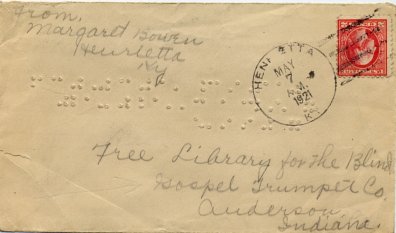 From,
Margaret Bowen
Henrietta
Ky
HENRIETTA
MAY
7
M.
1921
KY.
Free Library for the Blind
Gospel Trumpet Co.
Anderson,
Indiana.